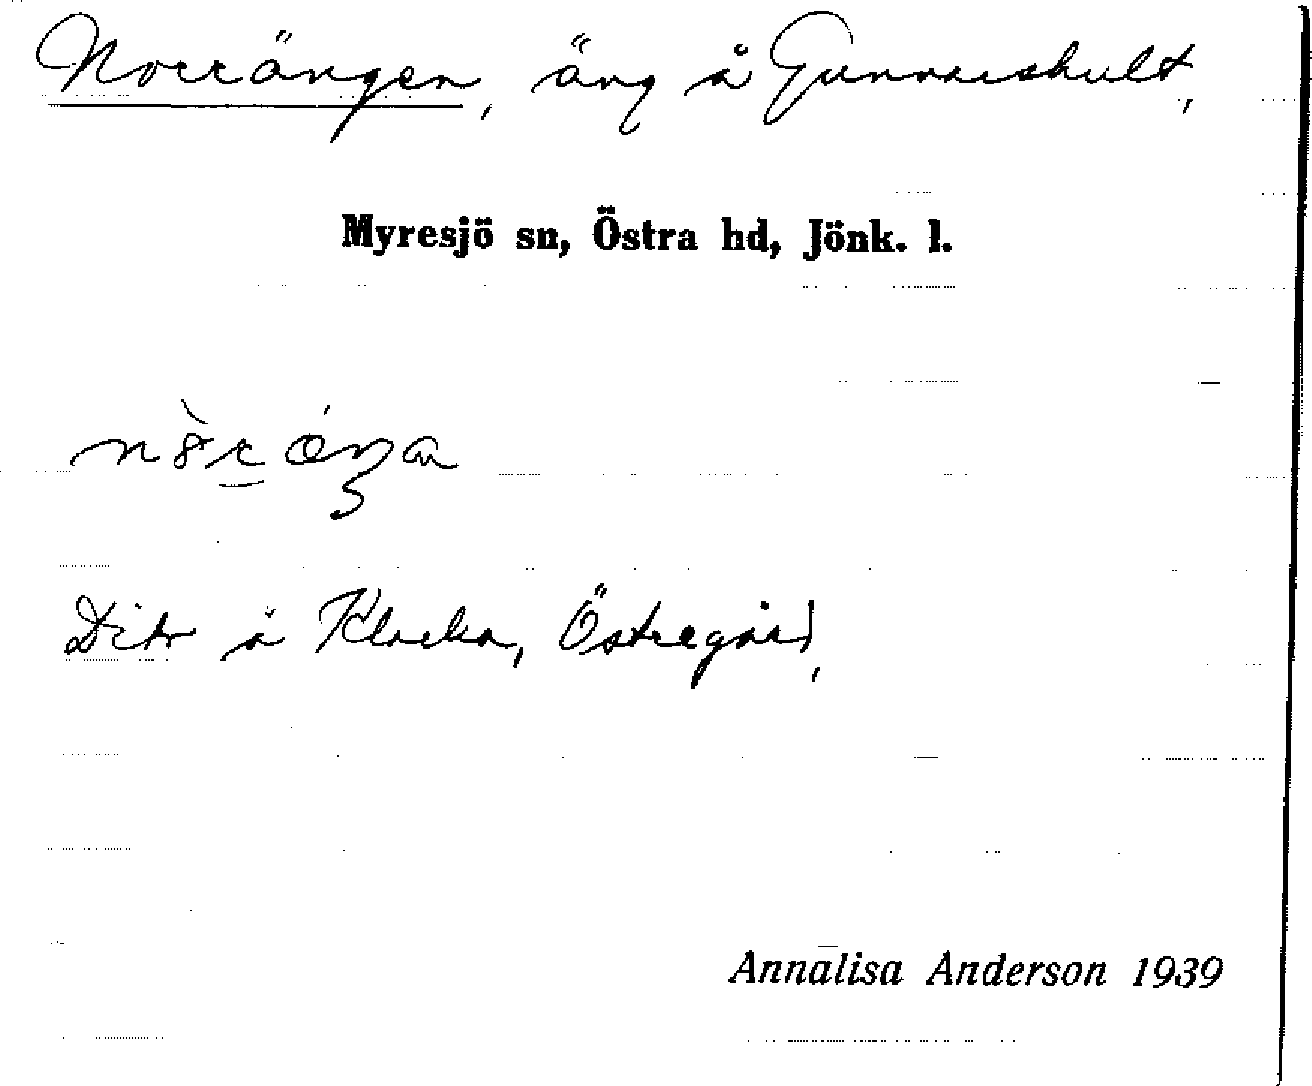 Norrängen, äng å Gunnarshult,
Myresjö sn, Östra hd, Jönk. l.
Dito å Klocka, Östregård,
Annalisa Anderson 1939